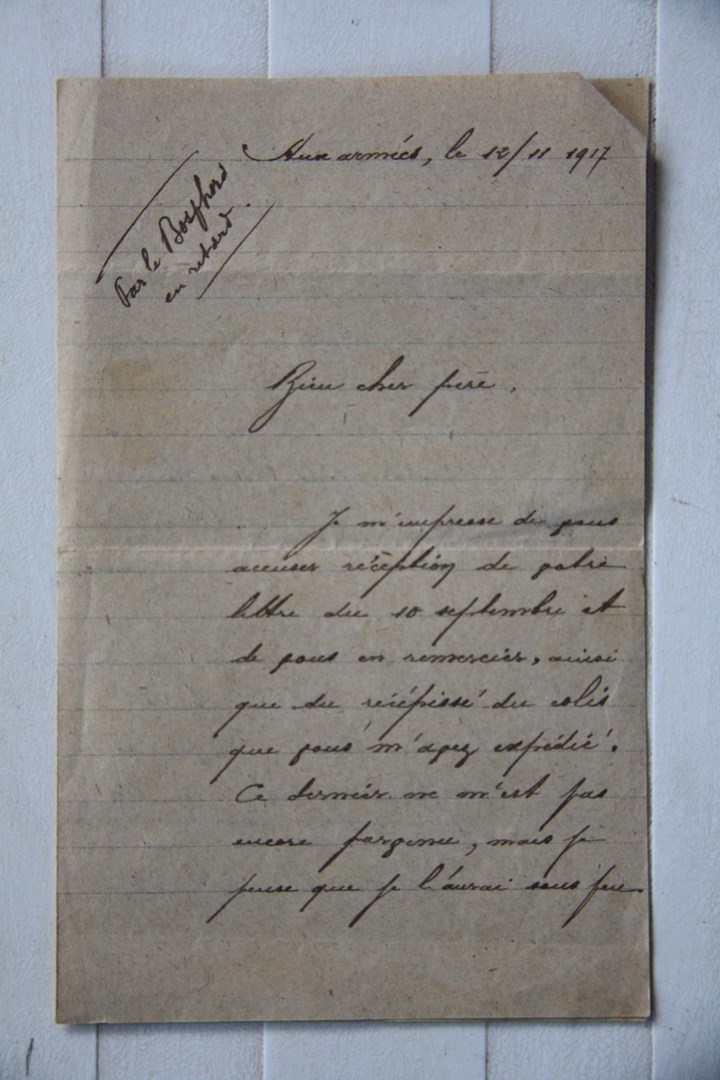 Aux armées, le 12/11 1917
Par le Bosphore
en retard.
Bien cher père,
Je m'empresse de vous
accuser réception de votre
lettre du 10 septembre et
de vous en remercier, ainsi
que du récépissé du colis
que vous m'avez expédié.
Ce dernier ne m'est pas
encore parvenu, mais je
pense que je l'aurai sous peu